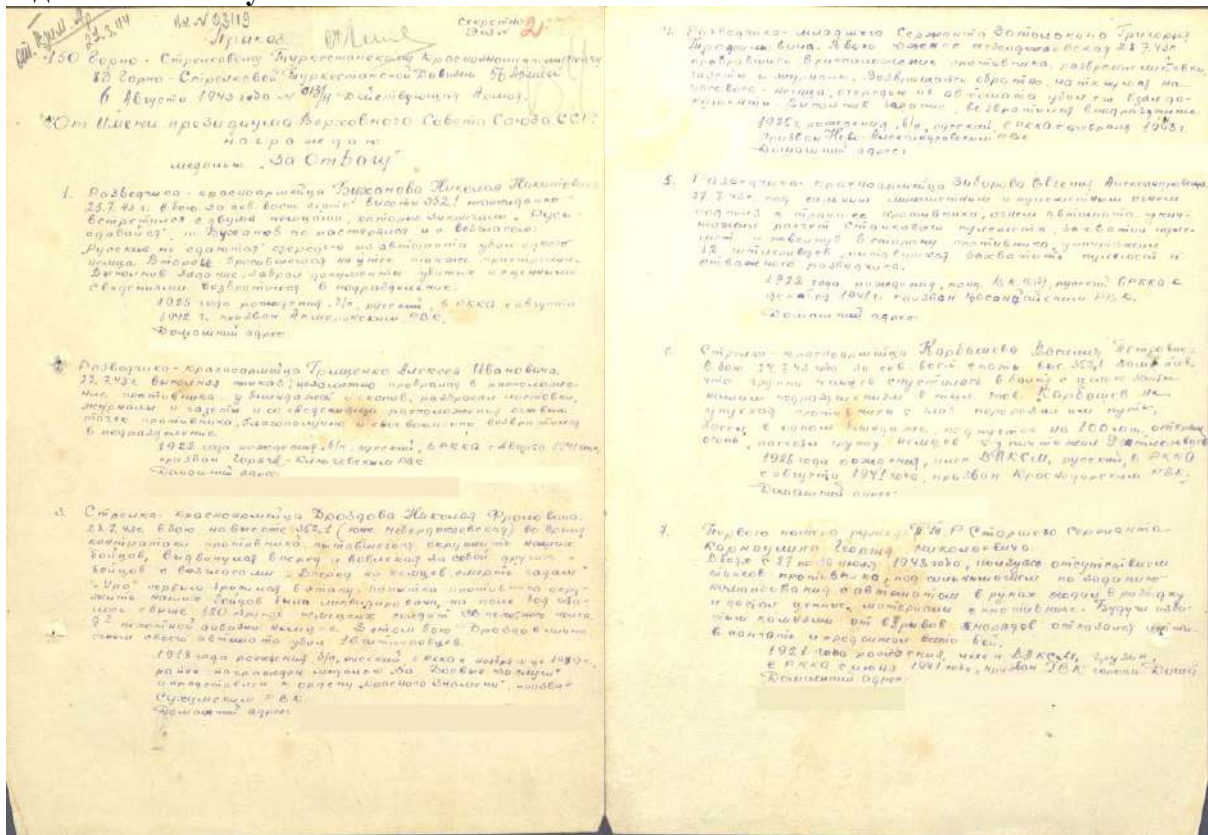 Вх № 03119
Секретно
Экз № 2.
27.3.44
Приказ
150 Горно-Стрелковому Туркестанскому Краснознаменному полку
83 Горно-Стрелковой Туркестанской Дивизии 56 Армии
6 Августа 1943 года № 013/н Действующая Армия.
От имени президиума Верховного Совета Союза ССР
награждаю
медалью „За Отвагу"
1. Разведчика-красноармейца Бужанова Николая Никитовича
23.7.43 г. в бою за сев. вост. скаты высоты 352,1 неожиданно
встретился с двумя немцами, которые закричали „Русь
сдавайся", т. Бужанов не растерялся и с возгласом:
„Русские не сдаются" очередью из автомата убил одного
немца. Второго бросившегося на утек также пристрелил.
Выполнив задание, забрал документы убитых и с ценными
сведениями возвратился в подразделение.
1925 года рождения, б/п, русский, в РККА с августа
1942 г. призван РВК.
Домашний адрес:
2. Разведчика-красноармейца Грищенко Алексея Ивановича.
22.7.43 г. выполняя приказ, незаметно пробрался в расположе-
ние противника у блиндажей и окопов, разбросал листовки,
журналы и газеты и со сведениями расположения огневых
точек противника благополучно возвратился
в подразделение.
1923 года рождения, б/п, русский, в РККА с августа 1941 года,
призван Горяче-Ключевским РВК.
Домашний адрес:
3. Стрелка-красноармейца Дроздова Николая Фроловича.
27.7.43 г. в бою на высоте 352.1 (юж. Неберджаевская) во время
контратаки противника, пытавшегося окружить наших
бойцов, выдвинулся вперед и вовлекая за собой других
бойцов с возгласами „Вперед на немцев, смерть гадам"
„Ура" первым бросился в атаку. попытка противника окру-
жить наших бойцов была ликвидирована, на поле боя оста-
лось свыше 120 трупов немецких солдат из числа
97 пехотной дивизии немцев. В этом бою Дроздов лично
огнем своего автомата убил 18 гитлеровцев.
1918 года рождения, б/п, русский, в РККА с ноября 1939 г.,
ранее награжден медалью „За Боевые Заслуги"
и представлен к ордену „Красного Знамени", призван
Сухумским РВК.
Домашний адрес:
4. Разведчика-младшего Сержанта Затолокина Григория
Трофимовича. В бою южнее Неберджаевская 23.7.43 г.
пробравшись в расположение противника, разбросал листовки,
газеты и журналы. Возвращаясь обратно, наткнулся на
часового-немца, очередью из автомата убил
Выполнив задание возвратился в подразделение.
1925 г. рождения, б/п, русский, в РККА с февраля 1943 г.
призван Ново-Александровским РВК.
Домашний адрес:
5. Разведчика-красноармейца Зиборова Евгения Александровича.
27.7.43 г. под сильным минометным и пулеметным огнем
подполз к траншее противника, огнем автомата унич-
тожил расчет станкового пулемета, захватил пуле-
мет и повернув в сторону противника, уничтожил
12 гитлеровцев, пытавшихся захватить пулемет и
отважного разведчика.
1922 года рождения, канд. ВКП(б), русский, в РККА с
1941 г. призван РВК.
Домашний адрес:
6. Стрелка-красноармейца Карбашева Василия Петровича.
В бою 27.7.43 года за сев. вост. скаты выс. 352,1 заметив,
что группа немцев спустилась в балку с целью зайти
нашим подразделениям в тыл. тов. Карбашев не
упуская противника с глаз перерезал им путь,
подпустив на 100 мт. открыл
огонь, рассеял группу немцев и уничтожил 9 гитлеровцев
1925 года рождения, член ВЛКСМ, русский, в РККА
с августа 1941 года, призван Краснодарским РВК.
Домашний адрес:
7. Первого номера ружья П.Т.Р Старшего Сержанта-
Карнаулина Георгия Николаевича.
В боях с 27 по 30 июля 1943 года, пользуясь отсутствием
танков противника, под сильным огнем по заданию
командования с автоматом в руках ходил в разведку
и достал ценные материалы о противнике. Будучи
от взрывов снарядов отказался идти
в санчасть и продолжал вести бой.
1921 года рождения, член ВЛКСМ, грузин,
в РККА с июня 1941 года, призван ГВК города
Домашний адрес: